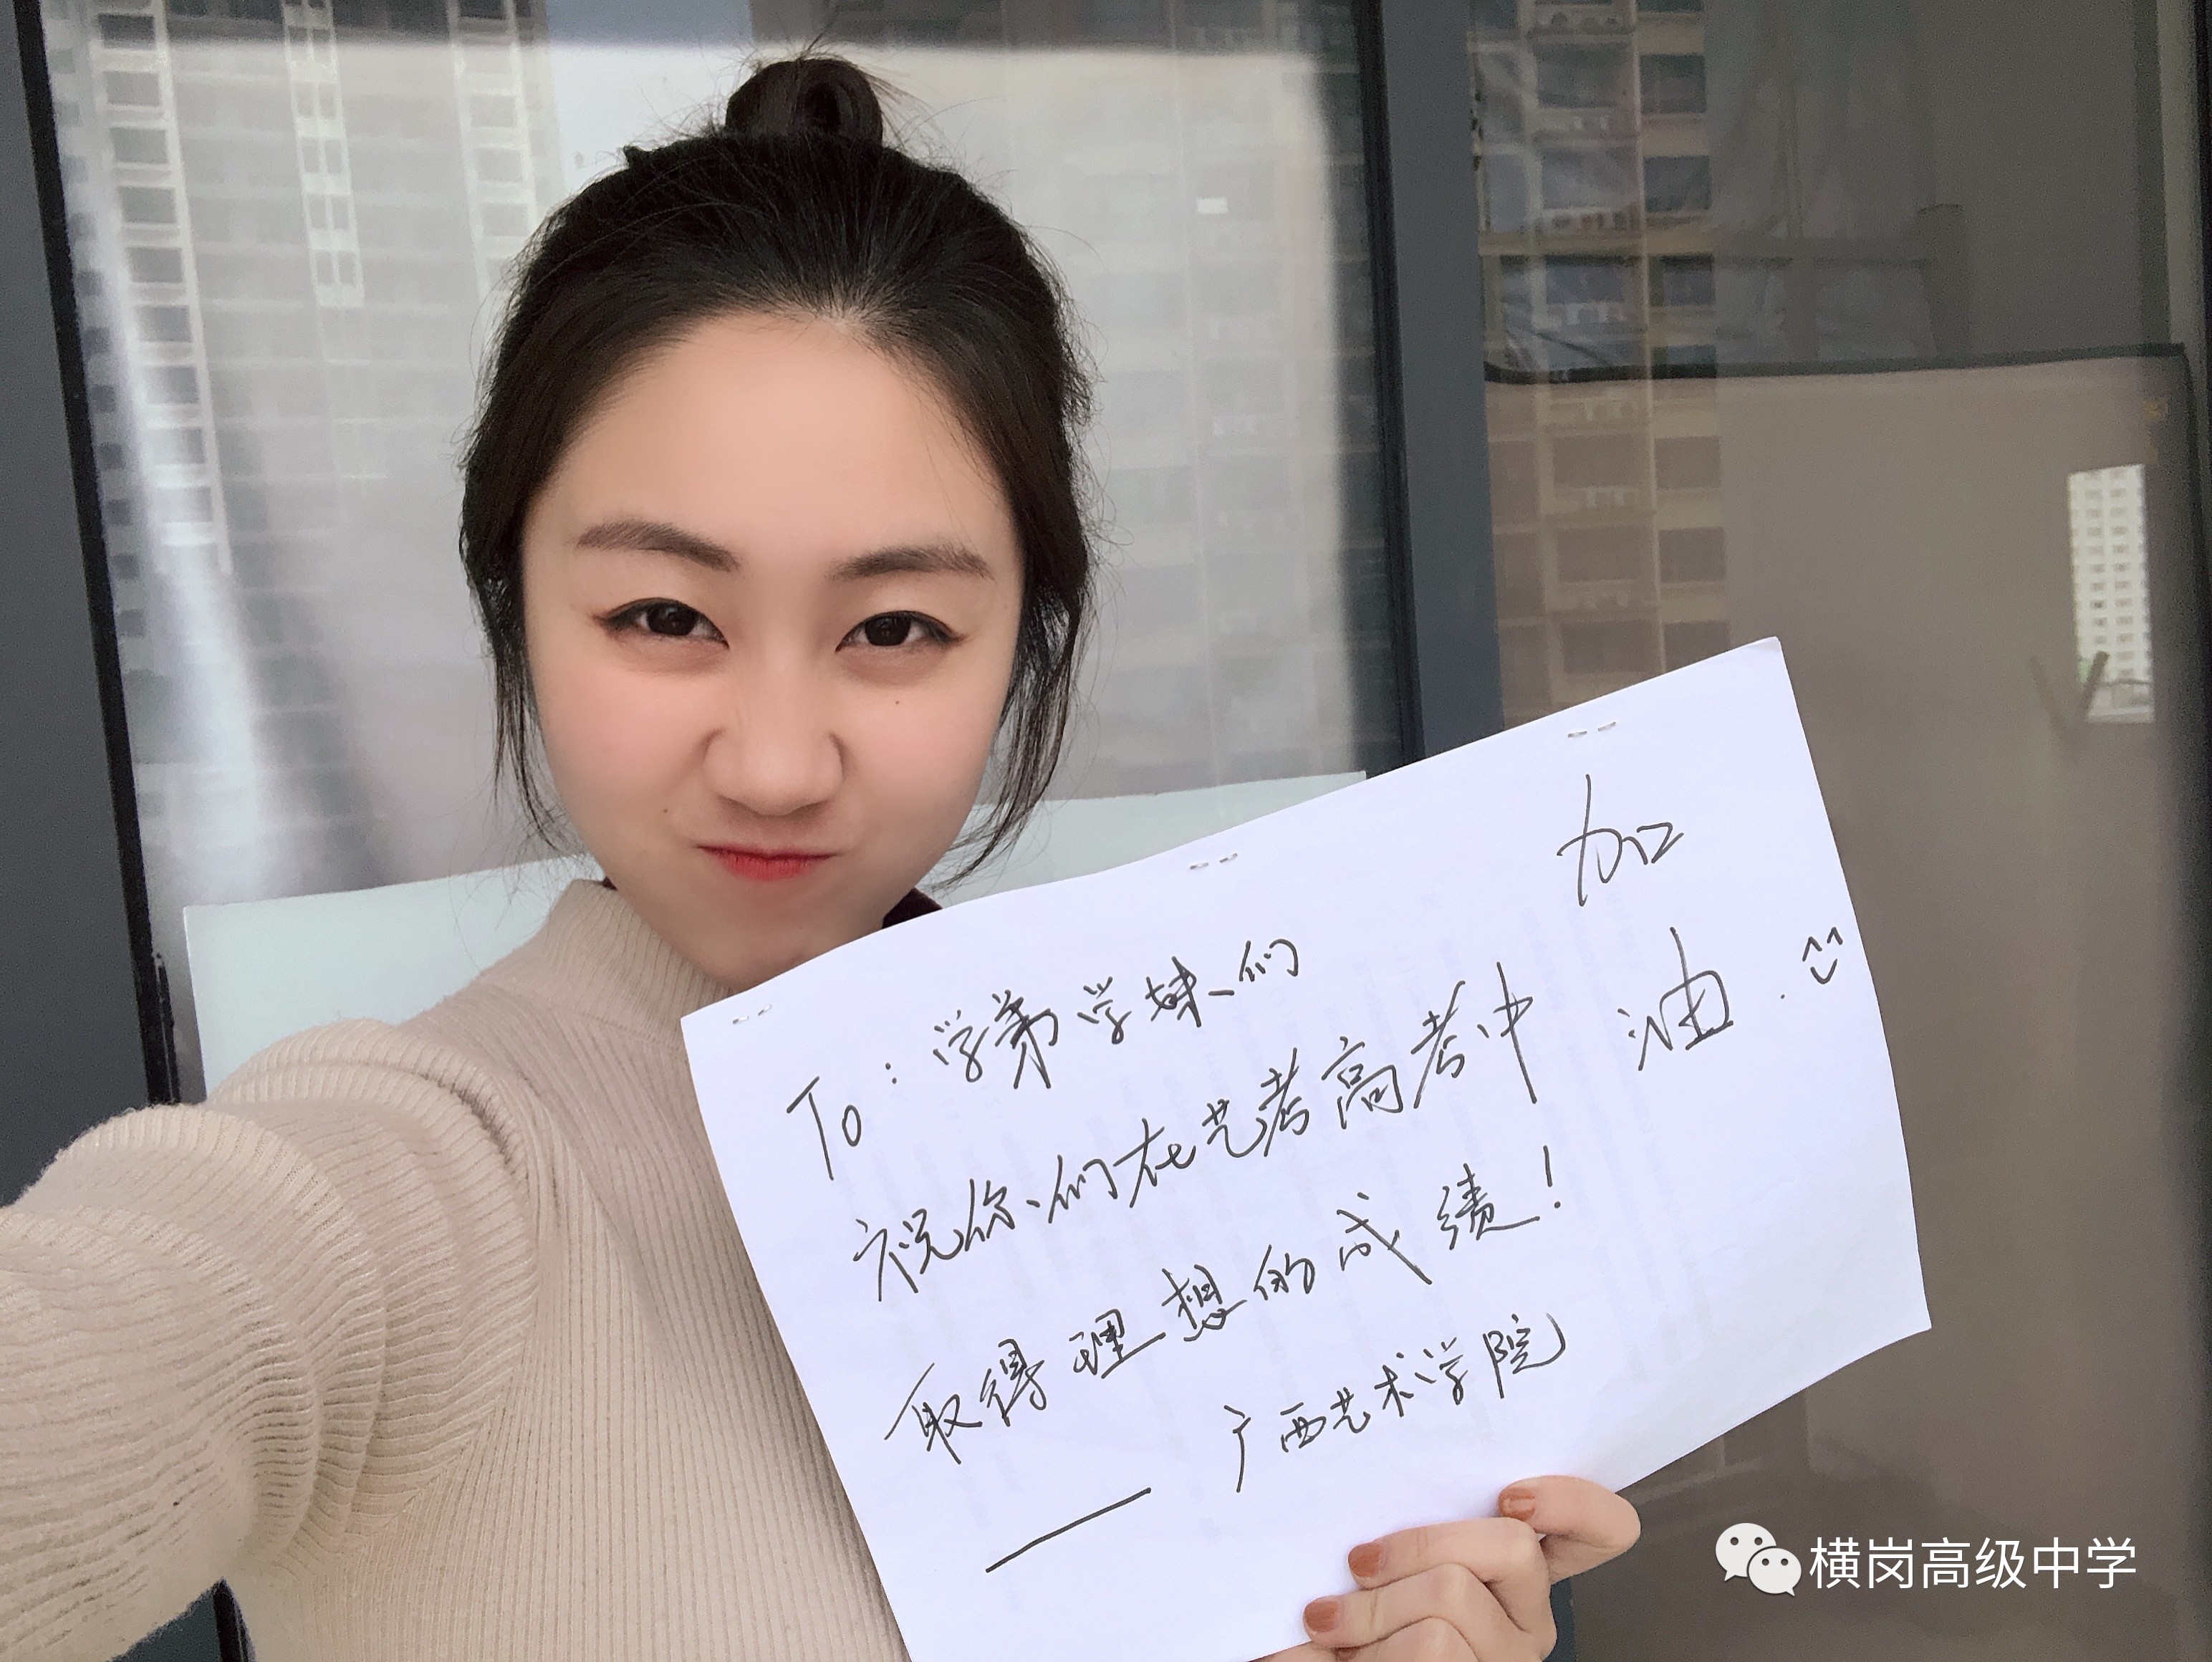 To：学弟学妹们
祝你们在艺考高考中
取得理想的成绩！
—— 广西艺术学院
加
油.
横岗高级中学